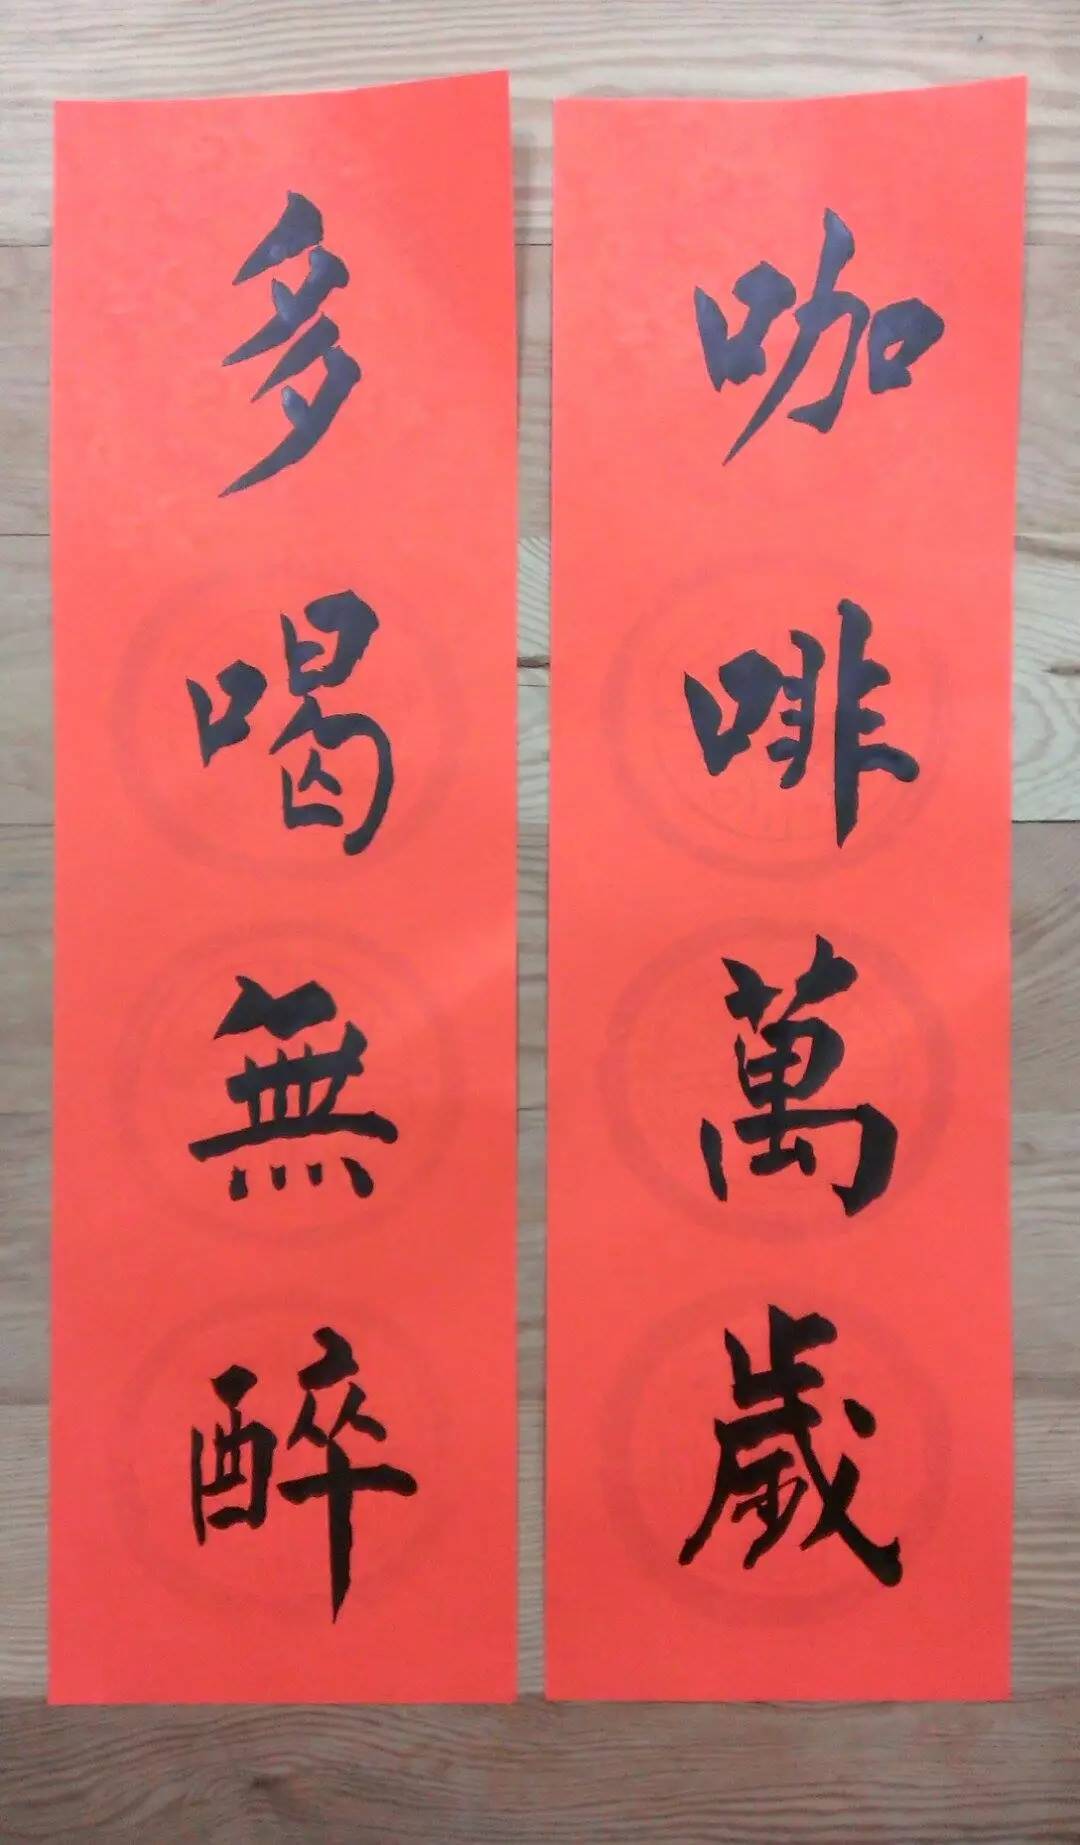 咖啡萬歲
多喝無醉